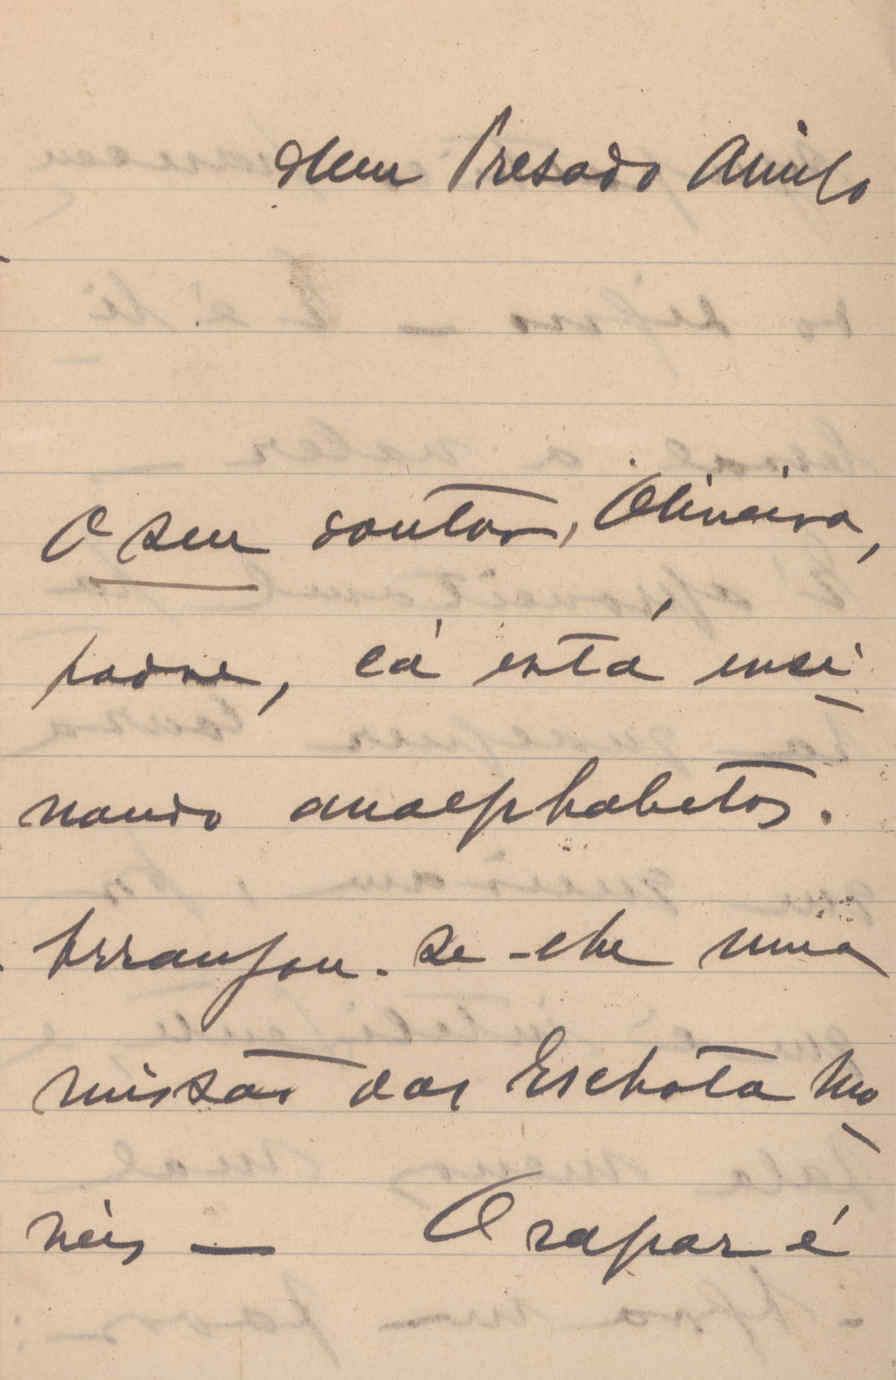 Meu Presado Amigo
O seu doutor, Oliveira,
padre, cá está ensi-
nando analphabetos.
Arranjou-se-lhe uma
missão das Escholas Mo-
veis — O rapaz é